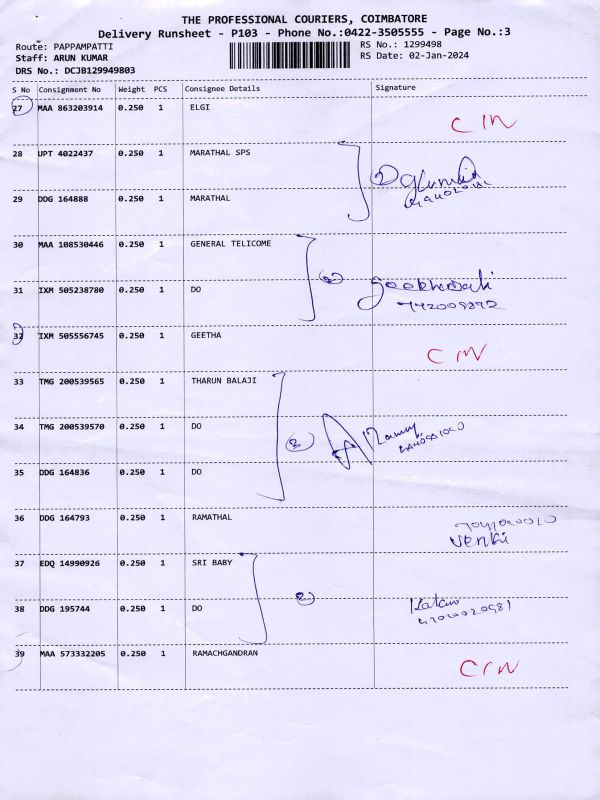 THE PROFESSIONAL COURIERS, COIMBATORE
Delivery Runsheet - P103 - Phone No.:0422-3505555 - Page No.:3
Route: PAPPAMPATTI RS No.: 1299498
Staff: ARUN KUMAR RS Date: 02-Jan-2024
DRS No.: DCJB129949803
S No Consignment No Weight PCS Consignee Details Signature
27 MAA 863203914 0.250 1 ELGI
28 UPT 4022437 0.250 1 MARATHAL SPS
29 DDG 164888 0.250 1 MARATHAL
30 MAA 108530446 0.250 1 GENERAL TELICOME
31 IXM 505238780 0.250 1 DO
32 IXM 505556745 0.250 1 GEETHA
33 TMG 200539565 0.250 1 THARUN BALAJI
34 TMG 200539570 0.250 1 DO
35 DDG 164836 0.250 1 DO
36 DDG 164793 0.250 1 RAMATHAL
venki
37 EDQ 14990926 0.250 1 SRI BABY
38 DDG 195744 0.250 1 DO
39 MAA 573332205 0.250 1 RAMACHGANDRAN